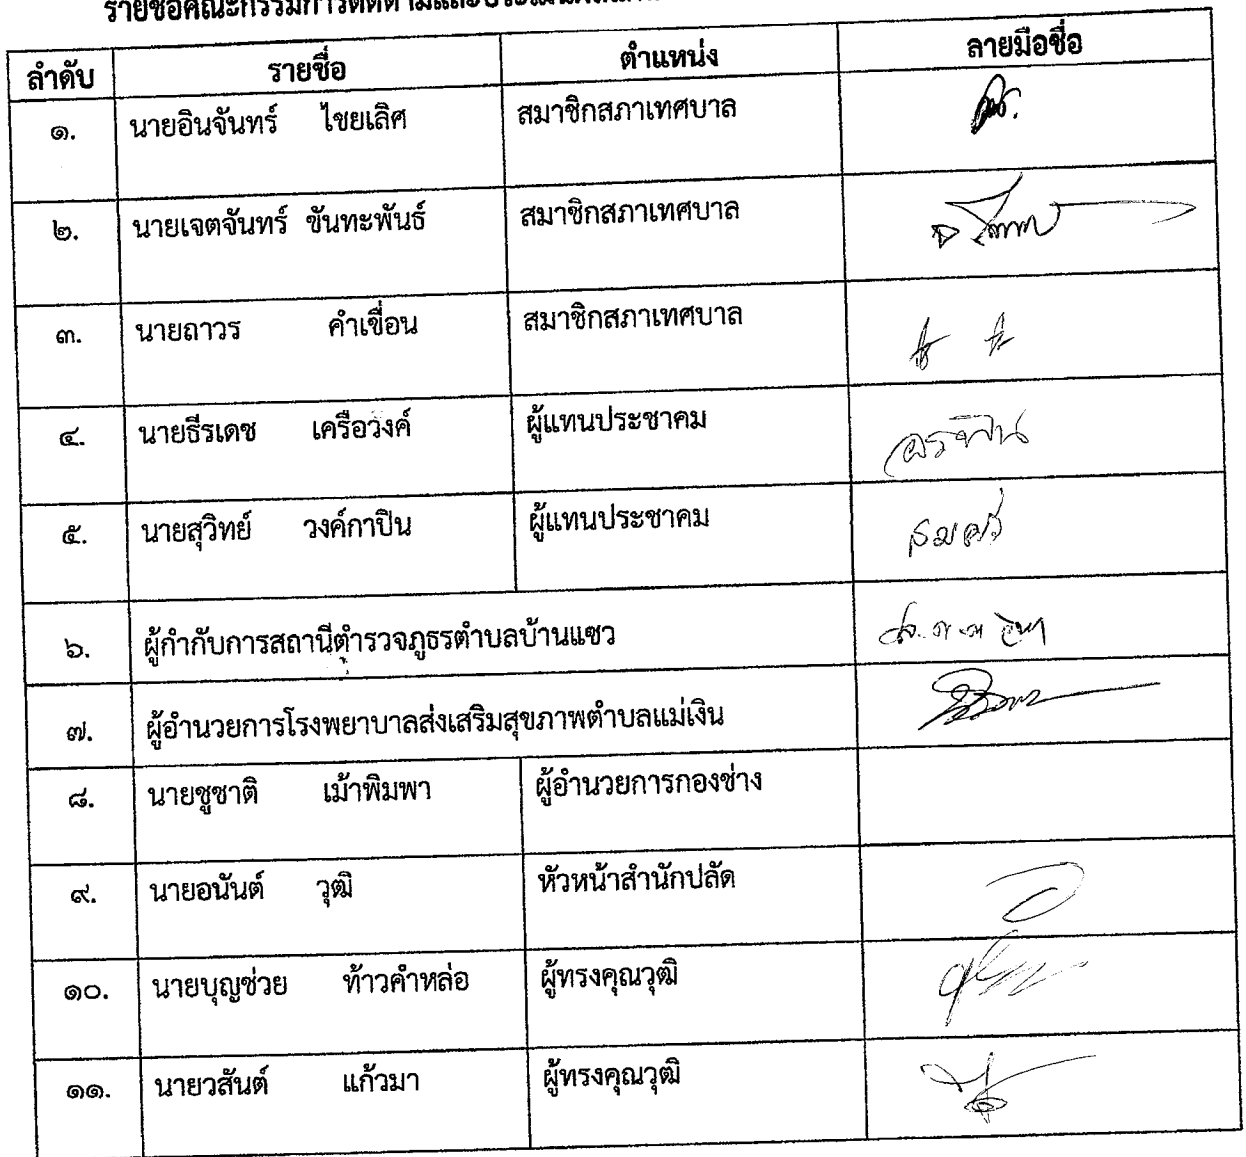 รายชื่อคณะกรรมการติดตามและประเมินผล
ลำดับ รายชื่อ ตำแหน่ง ลายมือชื่อ
๑. นายอินจันทร์ ไชยเลิศ สมาชิกสภาเทศบาล
๒. นายเจตจันทร์ ขันทะพันธ์ สมาชิกสภาเทศบาล
๓. นายถาวร คำเขื่อน สมาชิกสภาเทศบาล
๔. นายธีรเดช เครือวงค์ ผู้แทนประชาคม
๕. นายสุวิทย์ วงค์กาปิน ผู้แทนประชาคม สมศรี
๖. ผู้กำกับการสถานีตำรวจภูธรตำบลบ้านแซว
๗. ผู้อำนวยการโรงพยาบาลส่งเสริมสุขภาพตำบลแม่เงิน
๘. นายชูชาติ เม้าพิมพา ผู้อำนวยการกองช่าง
๙. นายอนันต์ วุฒิ หัวหน้าสำนักปลัด
๑๐. นายบุญช่วย ท้าวคำหล่อ ผู้ทรงคุณวุฒิ
๑๑. นายวสันต์ แก้วมา ผู้ทรงคุณวุฒิ